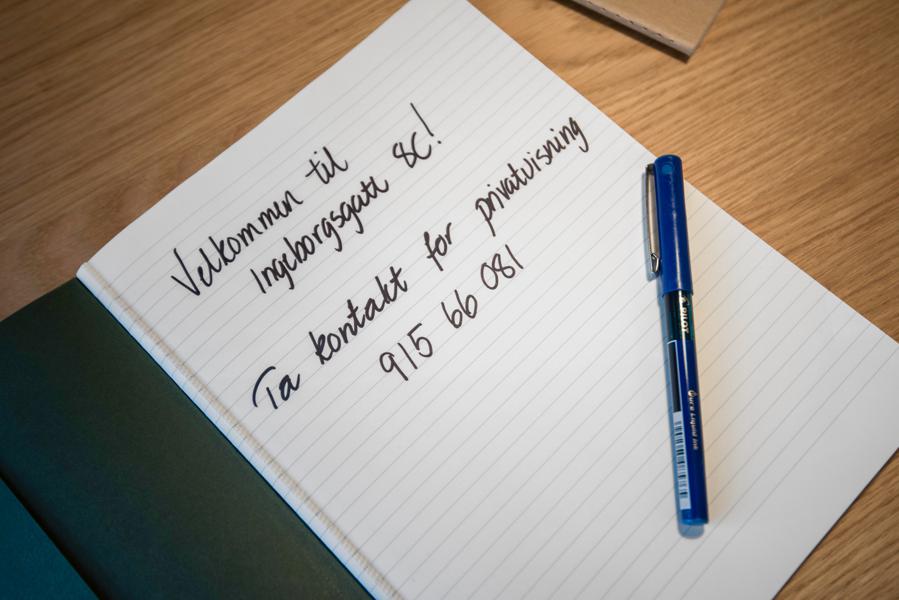 Velkommen til
Ingeborgsgate 8C!
Ta kontakt for privatvisning
915 66 081
PILOT
Pure Liquid Ink